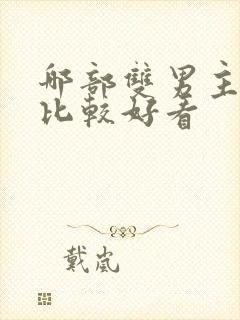 那部雙男主
比較好看
戴嵐